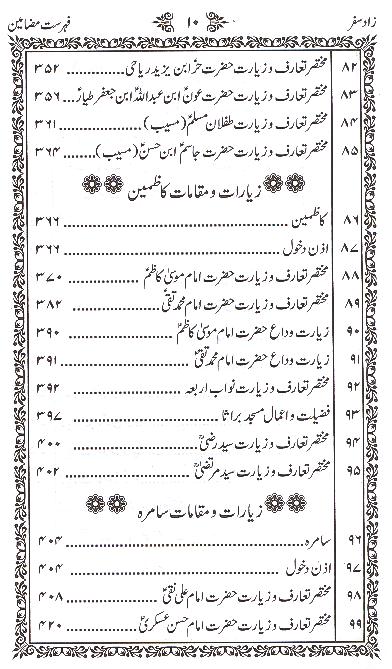 زاد سفر ۱۰ فہرست مضامین
۸۲ مختصر تعارف و زیارت حضرت حر ابن یزید ریاحی ............ ۳۵۲
۸۳ مختصر تعارف و زیارت حضرت عونؑ ابن عبداللہؑ ابن جعفر طیارؑ... ۳۵۶
۸۴ مختصر تعارف و زیارت طفلان مسلمؑ (مسیب) .................. ۳۶۱
۸۵ مختصر تعارف و زیارت حضرت جاسمؑ ابن حسنؑ (مسیب) ........ ۳۶۴
زیارات و مقامات کاظمین
۸۶ کاظمین ........................................ ۳۶۶
۸۷ اذن دخول ..................................... ۳۶۶
۸۸ مختصر تعارف و زیارت حضرت امام موسیٰ کاظمؑ ............ ۳۷۰
۸۹ مختصر تعارف و زیارت حضرت امام محمد تقیؑ ............... ۳۸۲
۹۰ زیارت وداع حضرت امام موسیٰ کاظمؑ ................... ۳۹۰
۹۱ زیارت وداع حضرت امام محمد تقیؑ ..................... ۳۹۱
۹۲ مختصر تعارف و زیارت نواب اربعہ ...................... ۳۹۲
۹۳ فضیلت و اعمال مسجد براثا ........................... ۳۹۷
۹۴ مختصر تعارف و زیارت سید رضیؒ ....................... ۴۰۰
۹۵ مختصر تعارف و زیارت سید مرتضیٰؒ ..................... ۴۰۲
زیارات و مقامات سامرہ
۹۶ سامرہ ......................................... ۴۰۴
۹۷ اذن دخول ..................................... ۴۰۴
۹۸ مختصر تعارف و زیارت حضرت امام علی نقیؑ ............... ۴۰۸
۹۹ مختصر تعارف و زیارت حضرت امام حسن عسکریؑ ............ ۴۲۰